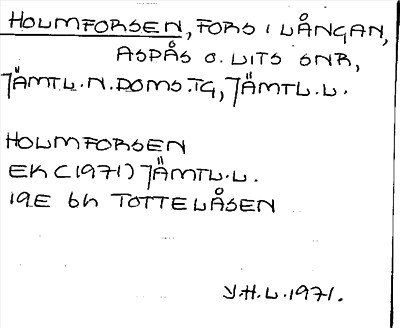 HOLMFORSEN, FORS I LÅNGAN,
ASPÅS O. LITS SNR,
JÄMTL.N.DOMS.TG, JÄMTL.L.
HOLMFORSEN
EK (1971) JÄMTL.L.
19E 6h TOTTELÅSEN
Y.H.L.1971.